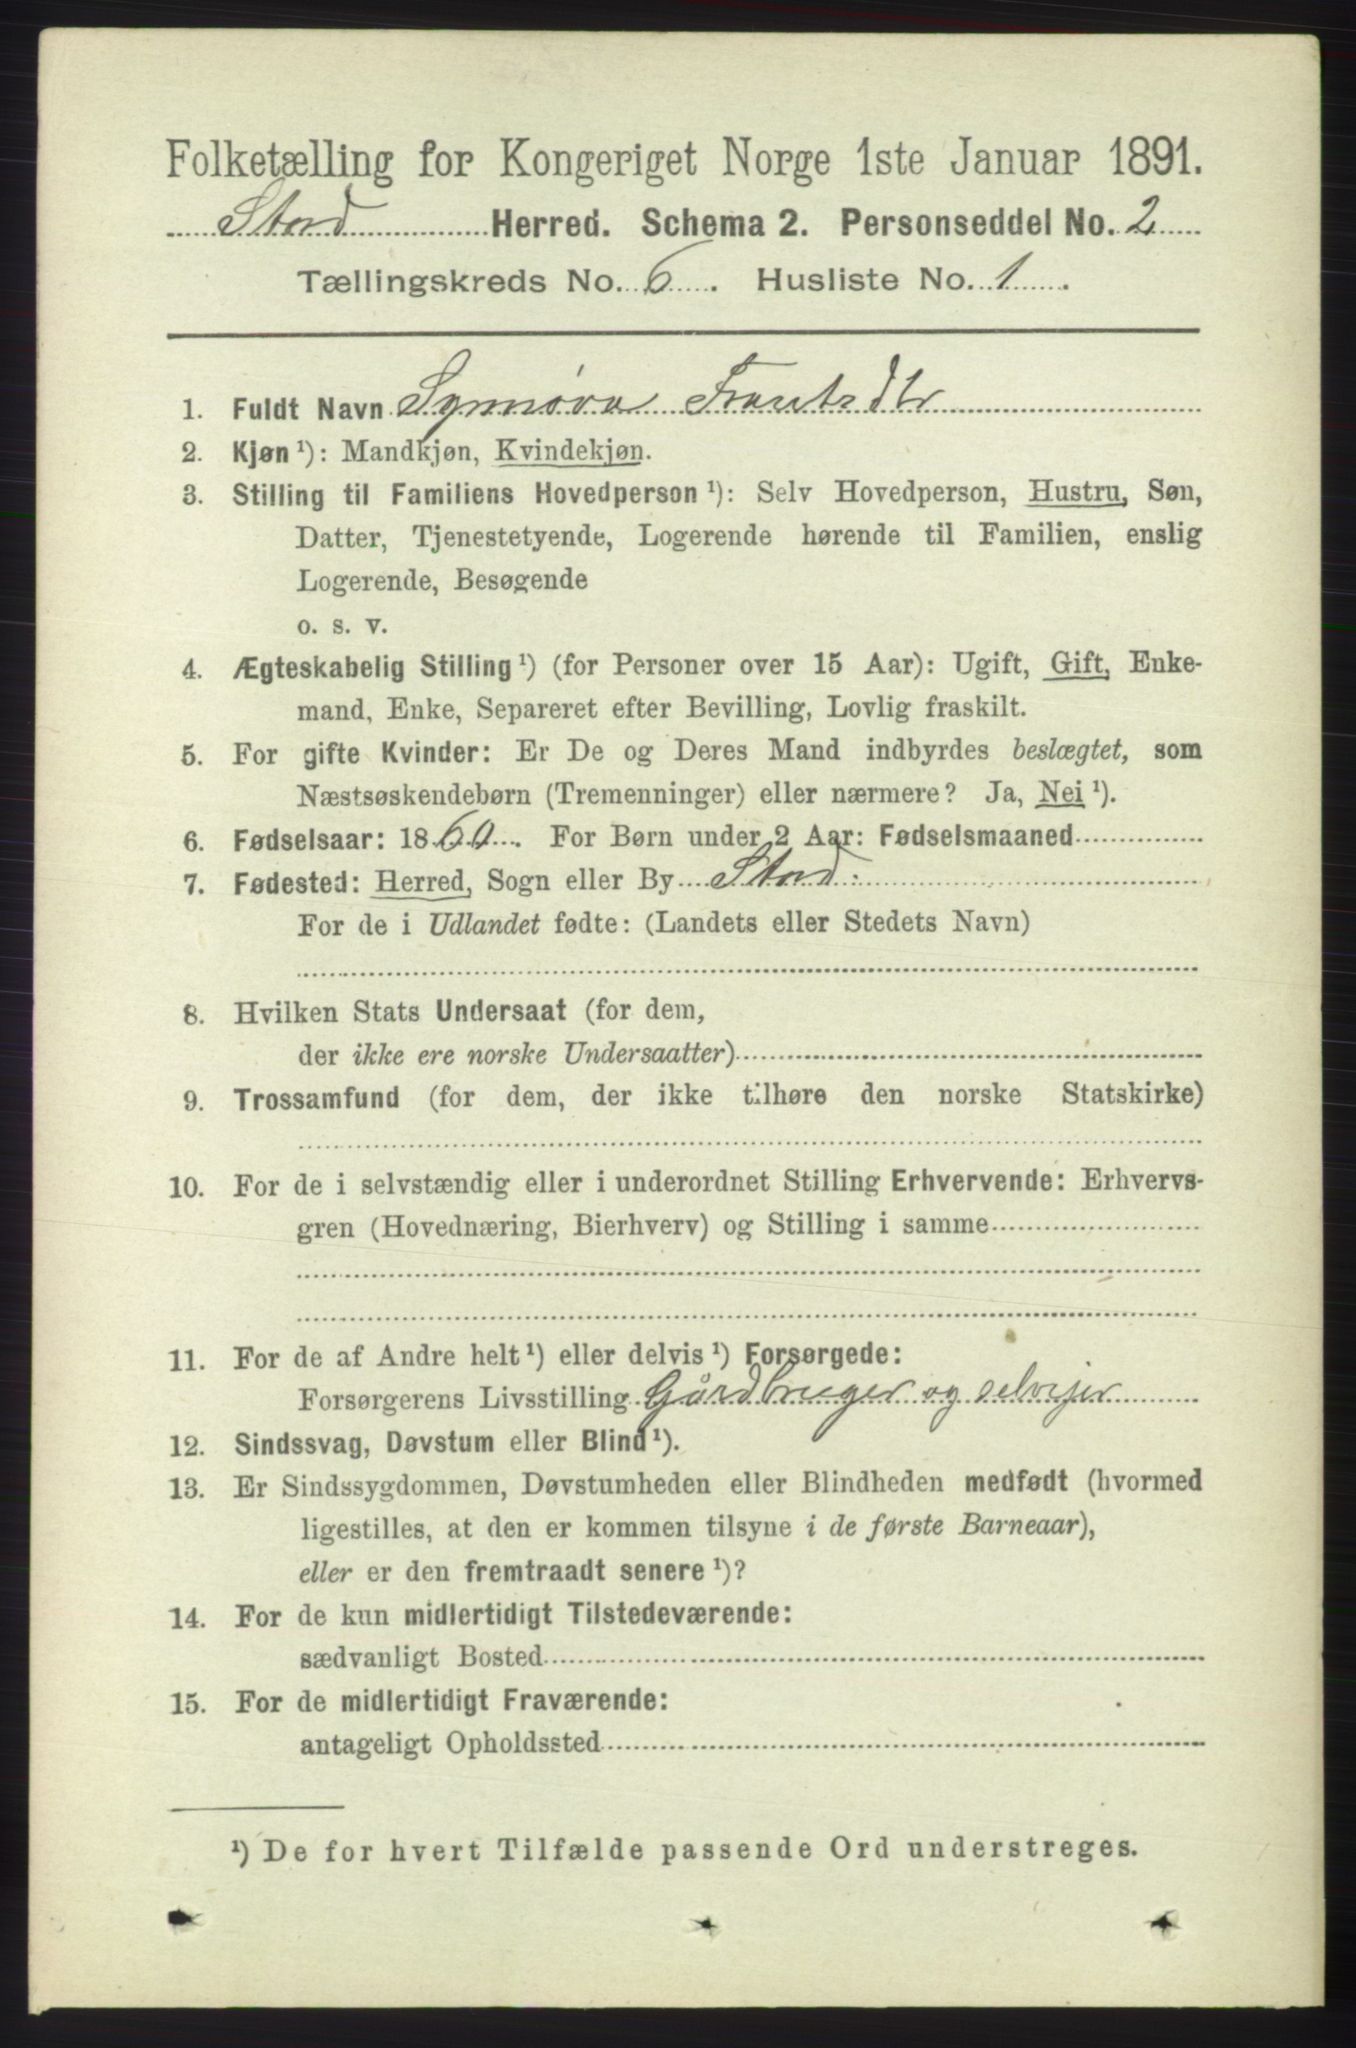 Folketælling for Kongeriget Norge 1ste Januar 1891.
Stord Herred. Schema 2. Personseddel No. 2
Tællingskreds No. 6. Husliste No. 1.
1. Fuldt Navn Synnøva Frants Dtr
2. Kjøn ¹): Mandkjøn, Kvindekjøn.
3. Stilling til Familiens Hovedperson ¹): Selv Hovedperson, Hustru, Søn,
Datter, Tjenestetyende, Logerende hørende til Familien, enslig
Logerende, Besøgende
o. s. v.
4. Ægteskabelig Stilling ¹) (for Personer over 15 Aar): Ugift, Gift, Enke-
mand, Enke, Separeret efter Bevilling, Lovlig fraskilt.
5. For gifte Kvinder: Er De og Deres Mand indbyrdes beslægtet, som
Næstsøskendebørn (Tremenninger) eller nærmere? Ja, Nei ¹).
6. Fødselsaar: 1860. For Børn under 2 Aar: Fødselsmaaned
7. Fødested: Herred, Sogn eller By Stord.
For de i Udlandet fødte: (Landets eller Stedets Navn)
8. Hvilken Stats Undersaat (for dem,
der ikke ere norske Undersaatter)
9. Trossamfund (for dem, der ikke tilhøre den norske Statskirke)
10. For de i selvstændig eller i underordnet Stilling Erhvervende: Erhvervs-
gren (Hovednæring, Bierhverv) og Stilling i samme
11. For de af Andre helt ¹) eller delvis ¹) Forsørgede:
Forsørgerens Livsstilling Gårdbruger og selvejer
12. Sindssvag, Døvstum eller Blind ¹).
13. Er Sindssygdommen, Døvstumheden eller Blindheden medfødt (hvormed
ligestilles, at den er kommen tilsyne i de første Barneaar),
eller er den fremtraadt senere ¹)?
14. For de kun midlertidigt Tilstedeværende:
sædvanligt Bosted
15. For de midlertidigt Fraværende:
antageligt Opholdssted
¹) De for hvert Tilfælde passende Ord understreges.